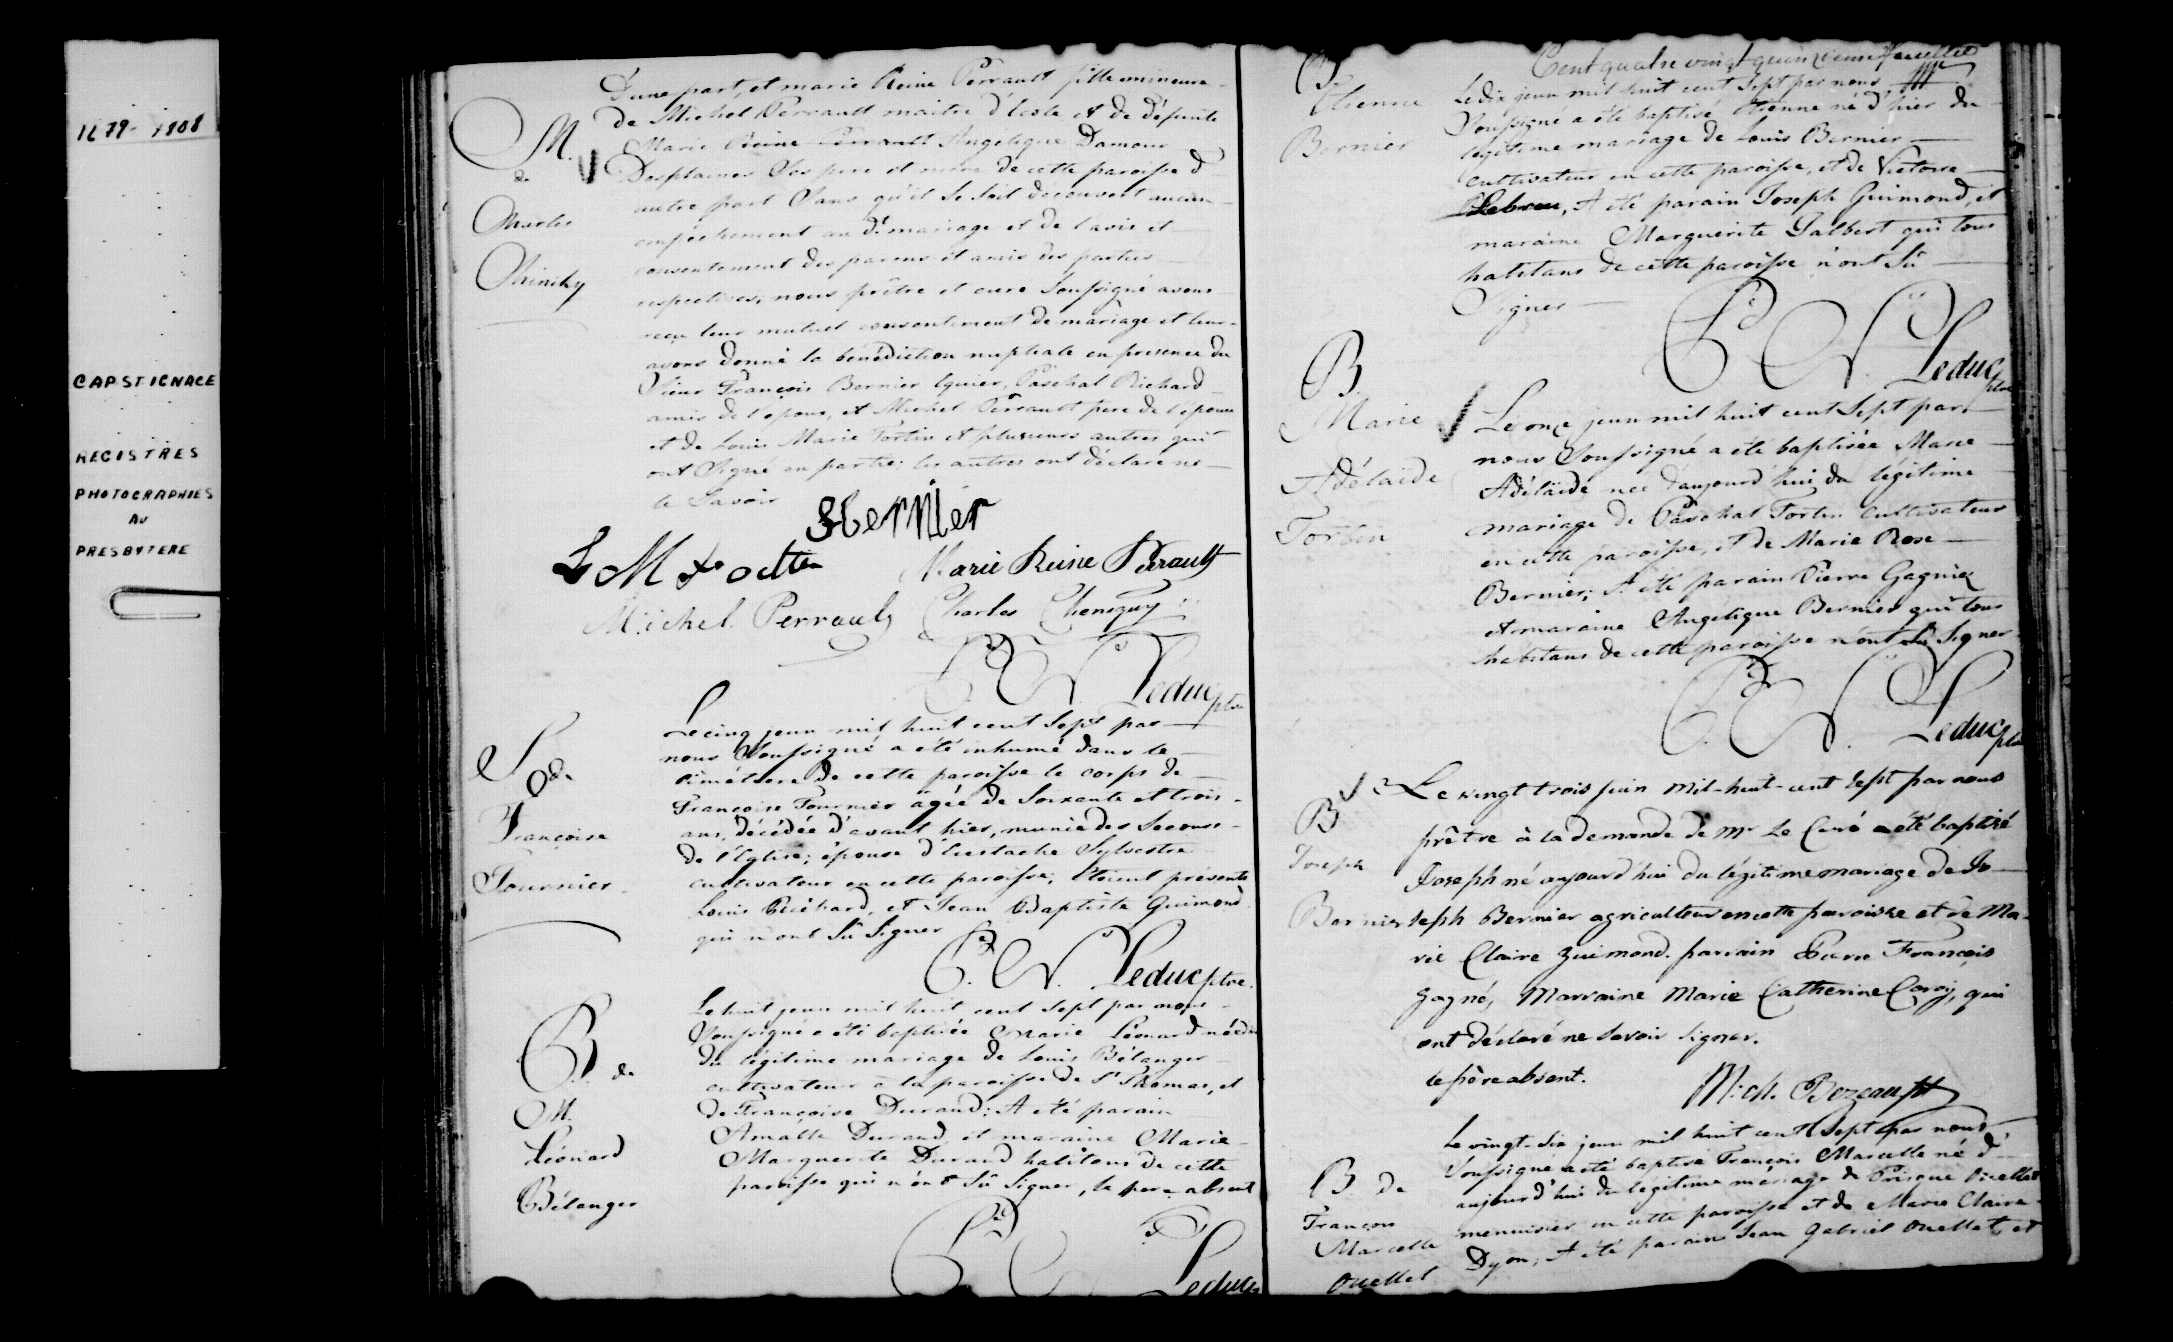 1679-1808
CAP ST IGNACE
REGISTRES
PHOTOGRAPHIES
AU
PRESBYTERE
D'une part, et marie Reine Perrault fille mineure
de Michel Perrault maitre d'Ecole et de défunte
Marie Reine Perrault Angelique Damour
Desplaines Ses pere et mere de cette paroisse d'
autre part Sans qu'il Se Soit découvert aucun
empêchement au d. mariage et de l'avis et
consentement des parens et amis des parties
respectives, nous prêtre et curé Soussigné avons
reçu leur mutuel consentement de mariage et leur
avons donné la bénédiction nuptiale en presence du
Sieur François Bernier Ecuier, Paschal Richard
amis de l'epoux, et Michel Perrault pere de l'épouse
et de Louis Marie Fortin et plusieurs autres qui
ont Signé en partie; les autres ont déclaré ne
le Savoir
M.
de
Charles
Chiniky
Bernier
L M Fortin Marie Reine Perault
Michel Perrault Charles Cheniquy
Leduc ptre
S
de
Françoise
Fournier
Le cinq juin mil huit cent Sept par
nous Soussigné a été inhumé dans le
cimétiere de cette paroisse le corps de
Françoise Fournier agée de Soixante et trois
ans, décédée d'avant hier, munie des Secours
de l'Eglise; épouse d'Eustache Sylvestre
cultivateur en cette paroisse; étoient présents
Louis Richard, et Jean Baptiste Guimond
qui n'ont Sû Signer
Leduc ptre.
B de
M.
Léonard
Bélanger
Le huit juin mil huit cent Sept par nous
Soussigné a été baptisée Marie Léonard née
du légitime mariage de Louis Bélanger
cultivateur à la paroisse de St Thomas, et
de Françoise Durand; A été parain
Amable Durand, et maraine Marie
Marguerite Durand habitans de cette
paroisse qui n'ont Sû Signer, le pere absent
Leduc
Cent quatre vingt quinzieme feuillet
Etienne
Bernier
Le dix juin mil huit cent Sept par nous
Soussigné a été baptisé Etienne né d'hier du
légitime mariage de Louis Bernier
cultivateur en cette paroisse, et de Victoire
Lebreu, A été parain Joseph Guimond, et
maraine Marguerite Jalbert qui tous
habitans de cette paroisse n'ont Sû
Signer
Leduc ptre
B.
Marie
Adélaïde
Fortin
Le onze juin mil huit cent Sept par
nous Soussigné a été baptisée Marie
Adélaïde née d'aujourd'hui du légitime
mariage de Paschal Fortin cultivateur
en cette paroisse, et de Marie Rose
Bernier; A été parain Pierre Gagniez
et maraine Angelique Bernier qui tous
habitans de cette paroisse n'ont Sû Signer.
Leduc ptre
B
Joseph
Bernier
Le vingt trois juin mil-huit-cent sept par nous
prêtre à la demande de Mr Le Curé a été baptisé
Joseph né aujourd'hui du légitime mariage de Jo-
seph Bernier agriculteur en cette paroisse et de Ma-
rie Claire Guimond. parrain Pierre François
Gagné, Marraine Marie Catherine Caron, qui
ont déclaré ne savoir signer.
le père absent.
Mich. Bezeau ptr
B de
François
Marcelle
Ouellet
Le vingt-six juin mil huit cent Sept par nous
Soussigné a été baptisé François Marcelle né d'
aujourd'hui du légitime mariage de Prisque Ouellet
mennisier en cette paroisse et de Marie Claire
Dyon; A été parain Jean Gabriel Ouellet, et